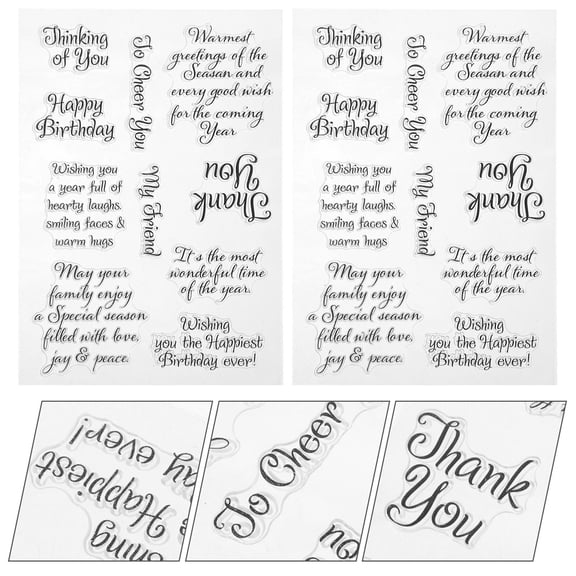 Thinking
of You
To Cheer You
Warmest
greetings of the
Seasan and
every good wish
for the coming
Year
Happy
Birthday
Wishing you
a year full of
hearty laughs,
smiling faces &
warm hugs
My Friend
Thank
You
It's the most
wonderful time
of the year.
May your
family enjoy
a Special season
filled with love,
jay & peace.
Wishing
you the Happiest
Birthday ever!
Thinking
of You
To Cheer You
Warmest
greetings of the
Seasan and
every good wish
for the coming
Year
Happy
Birthday
Wishing you
a year full of
hearty laughs,
smiling faces &
warm hugs
My Friend
Thank
You
It's the most
wonderful time
of the year.
May your
family enjoy
a Special season
filled with love,
jay & peace.
Wishing
you the Happiest
Birthday ever!
Happiest
ay ever!
hing
To Cheer
ou
Thank
You